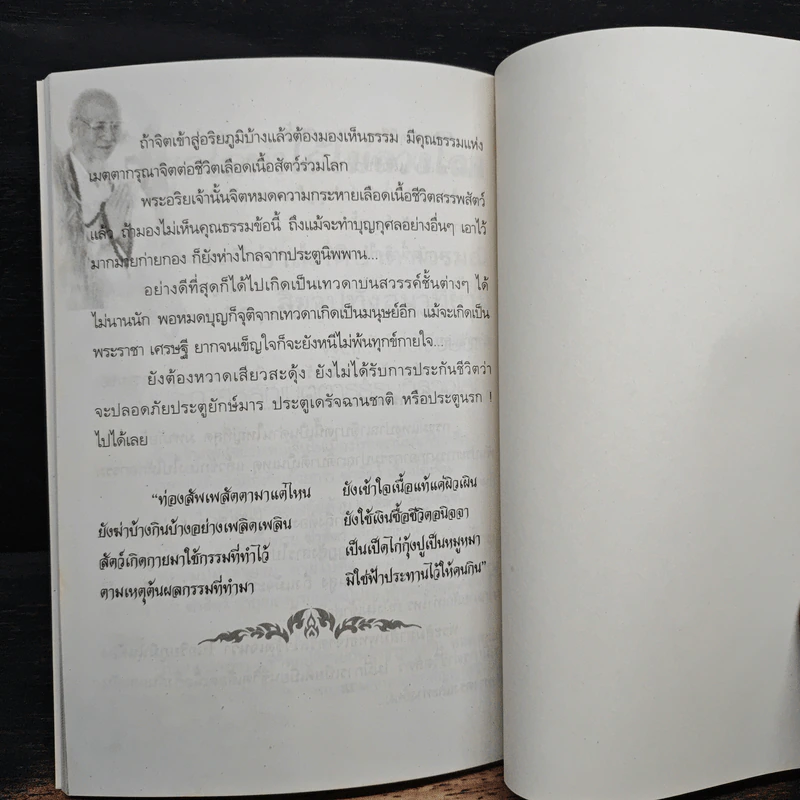 ถ้าจิตเข้าสู่อริยภูมิบ้างแล้วต้องมองเห็นธรรม มีคุณธรรมแห่ง
เมตตากรุณาจิตต่อชีวิตเลือดเนื้อสัตว์ร่วมโลก
พระอริยเจ้านั้นจิตหมดความกระหายเลือดเนื้อชีวิตสรรพสัตว์
แล้ว ถ้ามองไม่เห็นคุณธรรมข้อนี้ ถึงแม้จะทำบุญกุศลอย่างอื่นๆ เอาไว้
มากมายก่ายกอง ก็ยังห่างไกลจากประตูนิพพาน...
อย่างดีที่สุดก็ได้ไปเกิดเป็นเทวดาบนสวรรค์ชั้นต่างๆ ได้
ไม่นานนัก พอหมดบุญก็จุติจากเทวดาเกิดเป็นมนุษย์อีก แม้จะเกิดเป็น
พระราชา เศรษฐี ยากจนเข็ญใจก็จะยังหนีไม่พ้นทุกข์กายใจ...
ยังต้องหวาดเสียวสะดุ้ง ยังไม่ได้รับการประกันชีวิตว่า
จะปลอดภัยประตูยักษ์มาร ประตูเดรัจฉานชาติ หรือประตูนรก !
ไปได้เลย
“ท่องสัพเพสัตตามาแต่ไหน ยังเข้าใจเนื้อแท้แค่ผิวเผิน
ยังฆ่าบ้างกินบ้างอย่างเพลิดเพลิน ยังใช้เงินซื้อชีวิตอนิจจา
สัตว์เกิดกายมาใช้กรรมที่ทำไว้ เป็นเป็ดไก่กุ้งปูเป็นหมูหมา
ตามเหตุต้นผลกรรมที่ทำมา มิใช่ฟ้าประทานไว้ให้คนกิน”